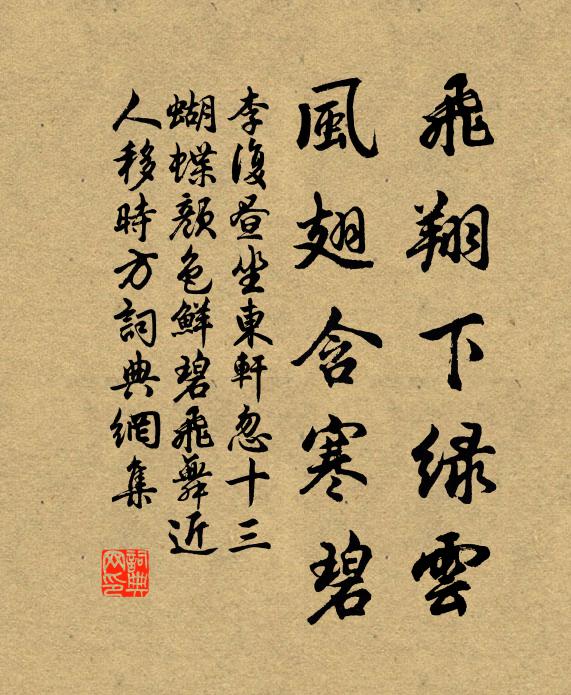 飛翔下綠雲
風翅含寒碧
李復晝坐東軒忽十三
蝴蝶顏色鮮碧飛舞近
人移時方詞典網集
詞典
网印